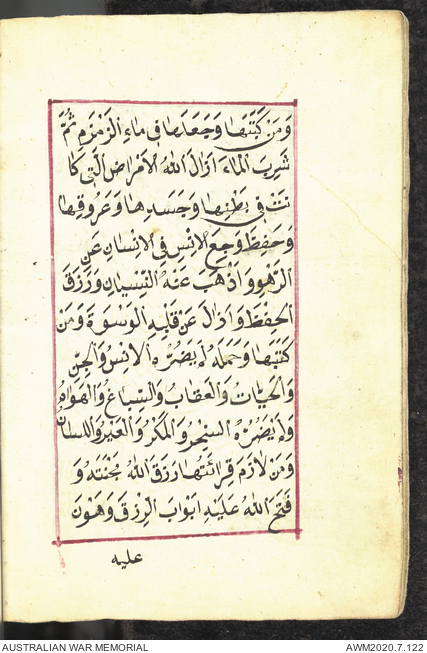 وَمَن كَتَبَهَا وَجَعَلَهَا فِي مَاءِ الزَّمْزَمِ ثُمَّ
شَرِبَ الْمَاءَ اَزَالَ اللهُ الْاَمْرَاضَ الَّتِي كَا
نَتْ فِي بَطْنِهَا وَجَسَدِهَا وَعُرُوقِهَا
وَحَفِظَ وَجَعَ الْاِنْسِ فِي الْاِنْسَانِ عَنِ
وَاَذْهَبَ عَنْهُ النِّسْيَانَ وَرَزَقَ
الْحِفْظَ وَاَزَالَ عَنْ قَلْبِهِ الْوَسْوَسَةَ وَمَنْ
كَتَبَهَا وَحَمَلَهُ لَمْ يَضُرَّهُ الْاِنْسُ وَالْجِنُّ
وَالْحَيَّاتُ وَالْعَقَابُ وَالسِّبَاعُ وَالْهَوَامُ
وَلَمْ يَضُرَّهُ السِّحْرُ وَالْمَكْرُ وَاللِّسَانُ
وَمَنْ لَازَمَ قِرَائَتَهَا رَزَقَ اللهُ وَ
فَتَحَ اللهُ عَلَيْهِ اَبْوَابَ الرِّزْقِ وَهَوَّنَ
عليه
AUSTRALIAN WAR MEMORIAL
AWM2020.7.122